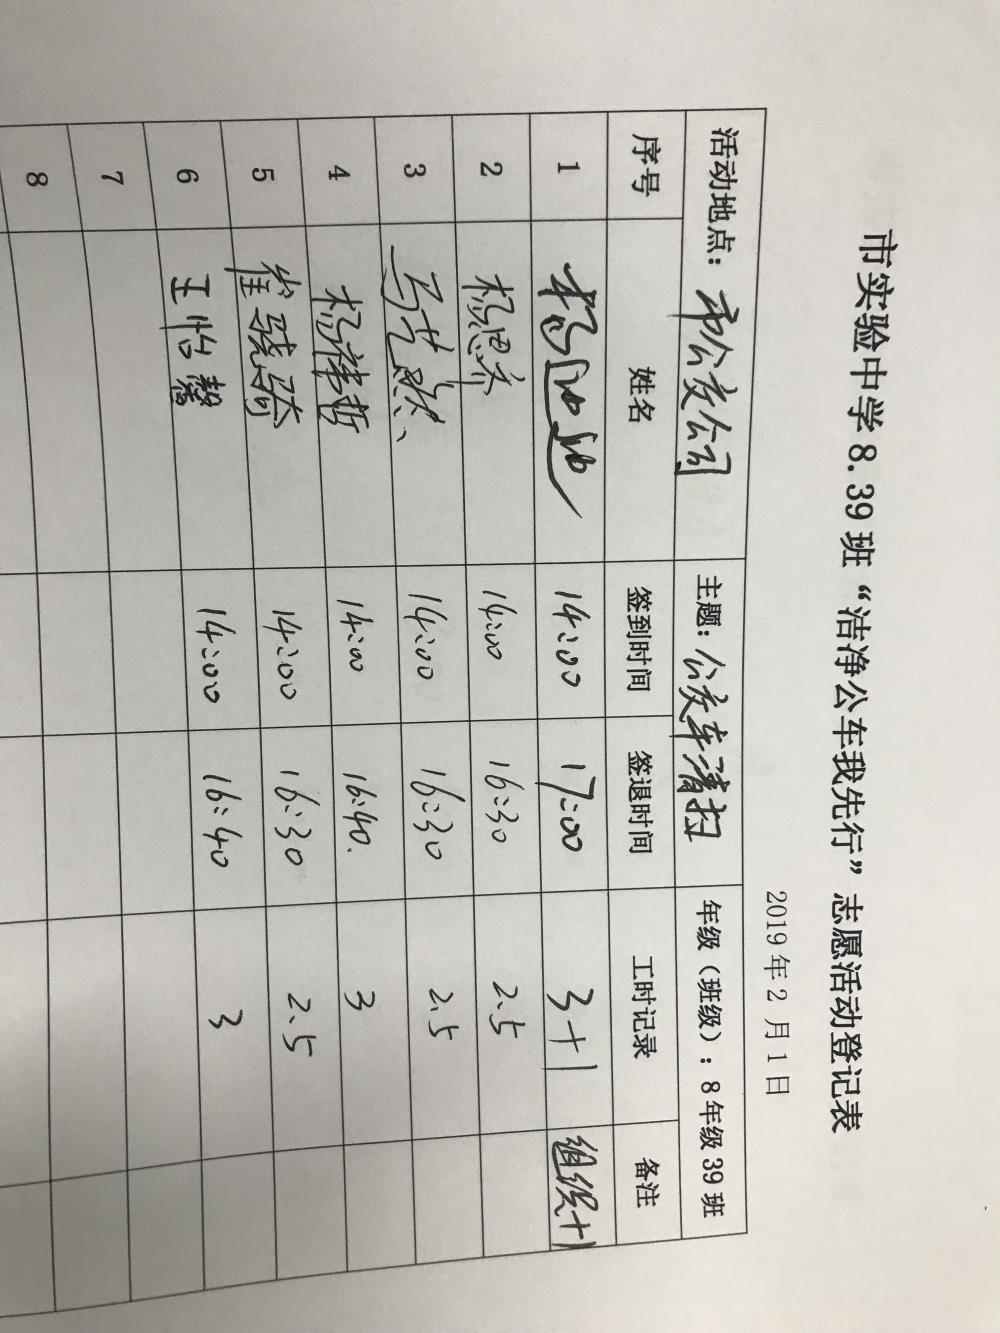 市实验中学8.39班“洁净公车我先行”志愿活动登记表
2019年2月1日
活动地点：市公交公司 主题：公交车清扫 年级（班级）：8年级39班
序号 姓名 签到时间 签退时间 工时记录 备注
1 14:00 17:00 3+1 组织+1
2 14:00 16:30 2.5
3 马艺 14:00 16:30 2.5
4 杨 哲 14:00 16:40. 3
5 崔晓 14:00 16:30 2.5
6 王怡馨 14:00 16:40 3
7
8